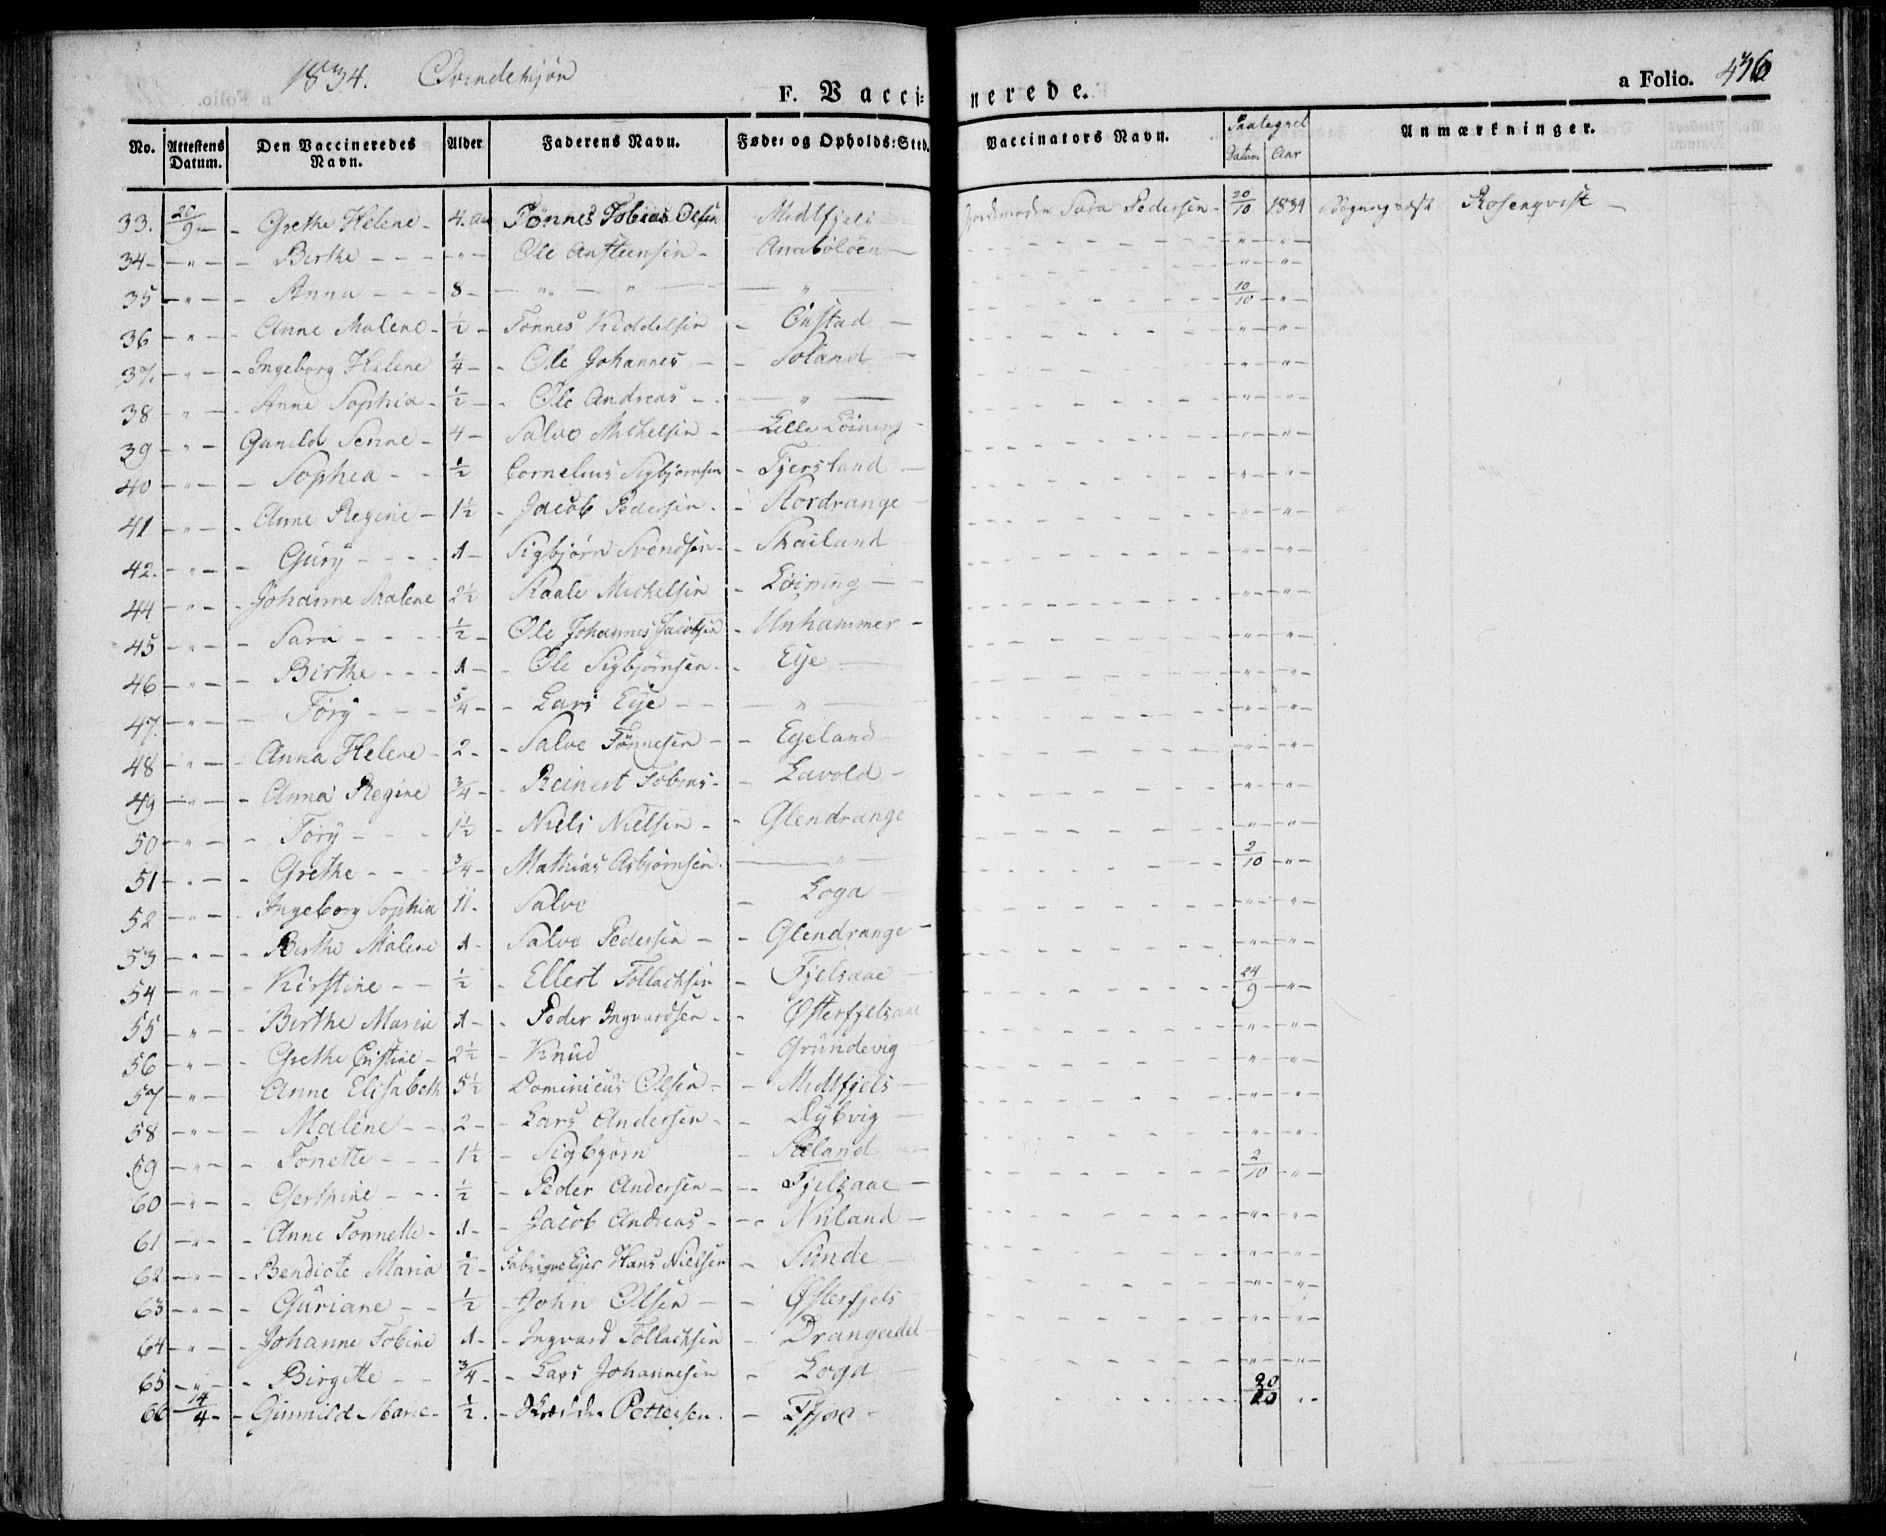 1834. Qvindekjøn
F. Vaccinerede.
a Folio. 436
No. | Attestens Datum. | Den Vaccineredes Navn. | Alder | Faderens Navn. | Føde- og Opholds-Sted. | Vaccinators Navn. | Paategnet Datum | Aar | Anmærkninger.
33. 20/9 - Grethe Helene - 4. Aar Tönnes Tobias Olsen Midtfjels Jordemoder Sara Pedersen - 20/10 1834 Sogneprest Rosenqvist -
34 - " - Birthe - " - Ole Austeensen - - " - - " -
35 - " - Anna - 8 - " - " - - " - - " - - " -
36 - " - Anne Malene - 1/2 - Tönnes Kiddelsen - Önstad - 10/10 - " -
37. - " - Ingeborg Helene 1/4 - Ole Johannes - Foland - " - - " -
38 - " - Anne Sophia - 1/2 - Ole Andreas - - " - - " - - " -
39 - " - Gunild Serine - 4 - Salve Michelsen - Lille Löining - " - - " -
40 - " - Sophia - 1/2 Cornelius Sigbjörnsen - Fjersland - " - - " -
41 - " - Anne Regine - 1 1/2 - Jacob Pedersen - Stordrange - " - - " -
42. - " - Gury - 1 - Sigbjörn Svendsen - Skailand - " - - " -
44 - " - Johanne Malene 2 1/2 Staale Michelsen - Löining - " - - " -
45 - " - Sara - 1/2 - Ole Johannes Jacobsen - Unhammer - " - - " -
46 - " - Birthe - 1 - Ole Sigbjörnsen - Eje - " - - " -
47. - " - Töry - 5/4 - Lars Eje - " - - " - - " -
48 - " - Anna Helene - 2 - Salve Tönnesen - Egeland - " - - " -
49 - " - Anna Regine 3/4 - Reinert Tobias - Lavold - " - - " -
50 - " - Töry - 1 1/2 - Niels Nielsen - Glendrange - " - - " -
51 - " - Grethe - 3/4 - Mathias Asbjörnsen - " - 2/10 - " -
52 - " - Ingeborg Sophia 11. Salve - Loga - " - - " -
53 - " - Birthe Malene 1 - Salve Pedersen - Glendrange - " - - " -
54 - " - Kirstine - 1/2 - Ellert Tollachsen - Fjelsaae 24/9 - " -
55 - " - Birthe Maria 1 - Peder Ingvardsen - Østerfjelsaae - " - - " -
56 - " - Grethe Cristine - 2 1/2 - Knud - Grundevig - " - - " -
57 - " - Anne Elisabeth 5 1/2 Dominicus Olsen - Midtfjels - " - - " -
58 - " - Malene - 2 - Lars Andersen - Dybvig - " - - " -
59 - " - Tonette - 1 1/2 - Sigbjörn - Sæland 2/10 - " -
60 - " - Gerthine - 1/2 - Peder Andersen - Fjelsaae - " -
61 - " - Anne Tonnette - 1 - Jacob Andreas - Nuland - " - - " -
62 - " - Bendicte Maria 1/2 - Fabriqve Ejer Hans Nielsen - Sunde - " - - " -
63 - " - Guriane - 1/2 - John Olsen - Østerfjels - " - - " -
64 - " - Johanne Tobine 1 - Ingvard Tollachsen - Drangeidet - " - - " -
65 - " - Birgitte - 3/4 - Lars Johannesen - Loga - " - - " -
66 14/4 - Gunnild Marie - 1/2. - Pettersen. - 20/10 "